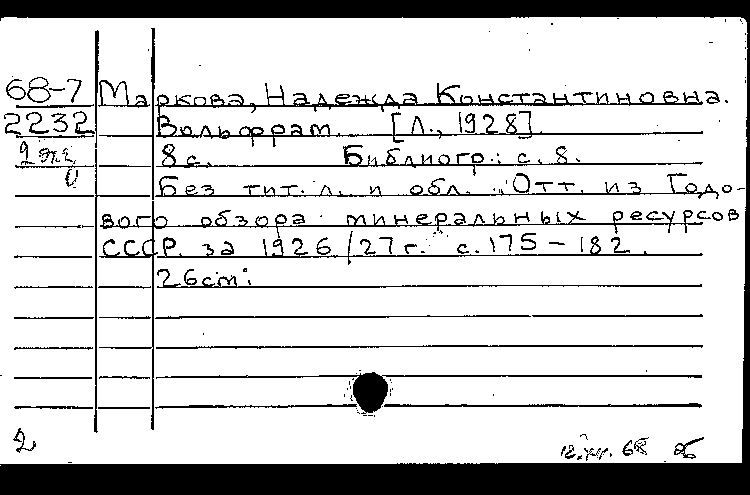 68-7 Маркова, Надежда Константиновна.
2232 Вольфрам. [Л., 1928].
2 экз 8 с. Библиогр.: с. 8.
Без тит. л. и обл. "Отт. из Годо-
вого обзора минеральных ресурсов
СССР. за 1926/27 г." с. 175 - 182.
26 cm.
2 68